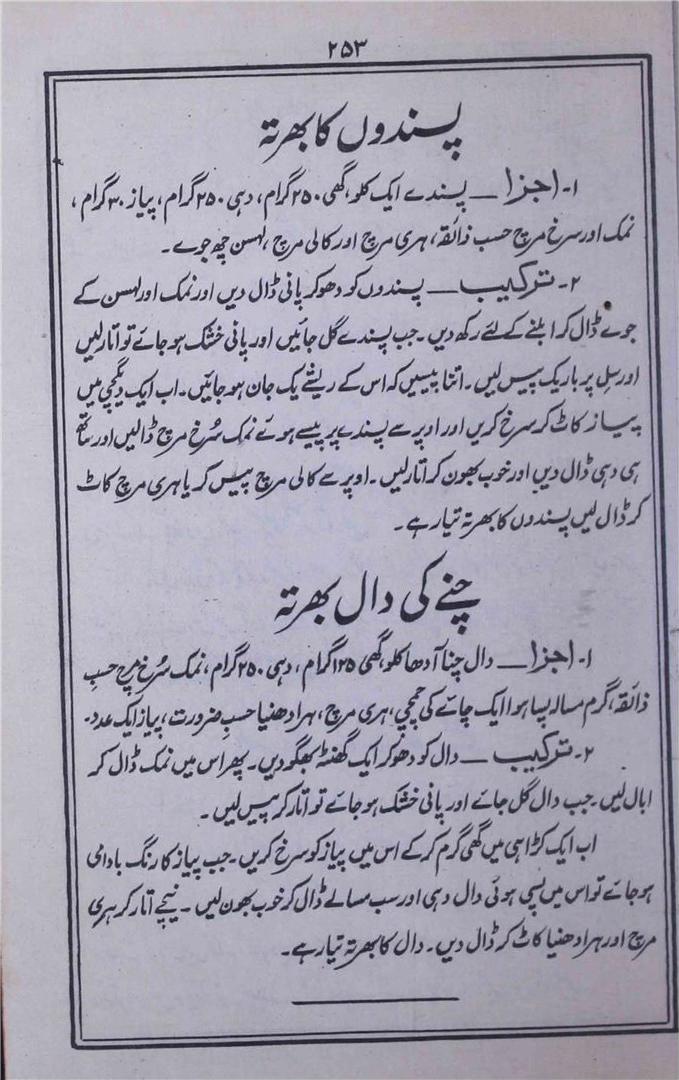 ۲۵۳
پسندوں کا بھرتہ
۱۔ اجزا ــ پسندے ایک کلو، گھی ۲۵۰ گرام، دہی ۲۵۰ گرام، پیاز ۳۰ گرام،
نمک اور سرخ مرچ حسب ذائقہ، ہری مرچ اور کالی مرچ، لہسن چھ جوے۔
۲۔ ترکیب ــ پسندوں کو دھو کر پانی ڈال دیں اور نمک اور لہسن کے
جوے ڈال کر ابلنے کے لئے رکھ دیں۔ جب پسندے گل جائیں اور پانی خشک ہو جائے تو اتار لیں
اور سِل پر باریک پیس لیں۔ اتنا پیسیں کہ اس کے ریشے یک جان ہو جائیں۔ اب ایک دیگچی میں
پیاز کاٹ کر سرخ کریں اور اوپر سے پسندے پر پیسے ہوئے نمک سُرخ مرچ ڈالیں اور ساتھ
ہی دہی ڈال دیں اور خوب بھون کر اتار لیں۔ اوپر سے کالی مرچ پیس کر یا ہری مرچ کاٹ
کر ڈال لیں پسندوں کا بھرتہ تیار ہے۔
چنے کی دال بھرتہ
۱۔ اجزا ــ دال چنا آدھا کلو، گھی ۱۲۵ گرام، دہی ۲۵۰ گرام، نمک سُرخ مرچ حسبِ
ذائقہ، گرم مسالہ پسا ہوا ایک چائے کی چمچی، ہری مرچ، ہرا دھنیا حسبِ ضرورت، پیاز ایک عدد۔
۲۔ ترکیب ــ دال کو دھو کر ایک گھنٹہ بھگو دیں۔ پھر اس میں نمک ڈال کر
ابال لیں۔ جب دال گل جائے اور پانی خشک ہو جائے تو اتار کر پیس لیں۔
اب ایک کڑاہی میں گھی گرم کر کے اس میں پیاز کو سرخ کریں۔ جب پیاز کا رنگ بادامی
ہو جائے تو اس میں پسی ہوئی دال دہی اور سب مسالے ڈال کر خوب بھون لیں۔ نیچے اتار کر ہری
مرچ اور ہرا دھنیا کاٹ کر ڈال دیں۔ دال کا بھرتہ تیار ہے۔